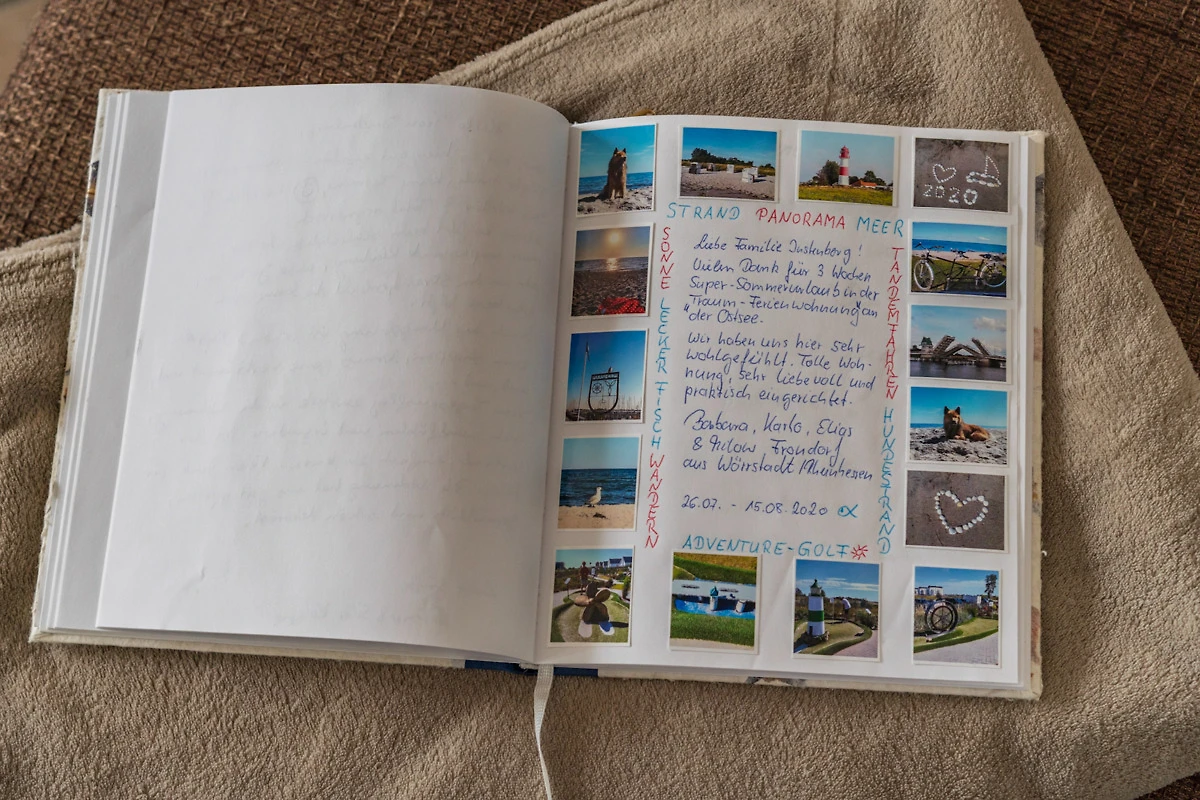 2020
STRAND PANORAMA MEER
SONNE LECKER FISCH WANDERN
Liebe Familie
Vielen Dank für 3 Wochen
Super-Sommerurlaub in der
"Traum-Ferienwohnung" an
der Ostsee.
Wir haben uns hier sehr
wohlgefühlt. Tolle Woh-
nung, sehr liebevoll und
praktisch eingerichtet.
Barbara, Karlo, Elias
& Milow Frondorf
aus Wörrstadt Rheinhessen
26.07. - 15.08.2020
TANDEMFAHREN HUNDESTRAND
ADVENTURE-GOLF